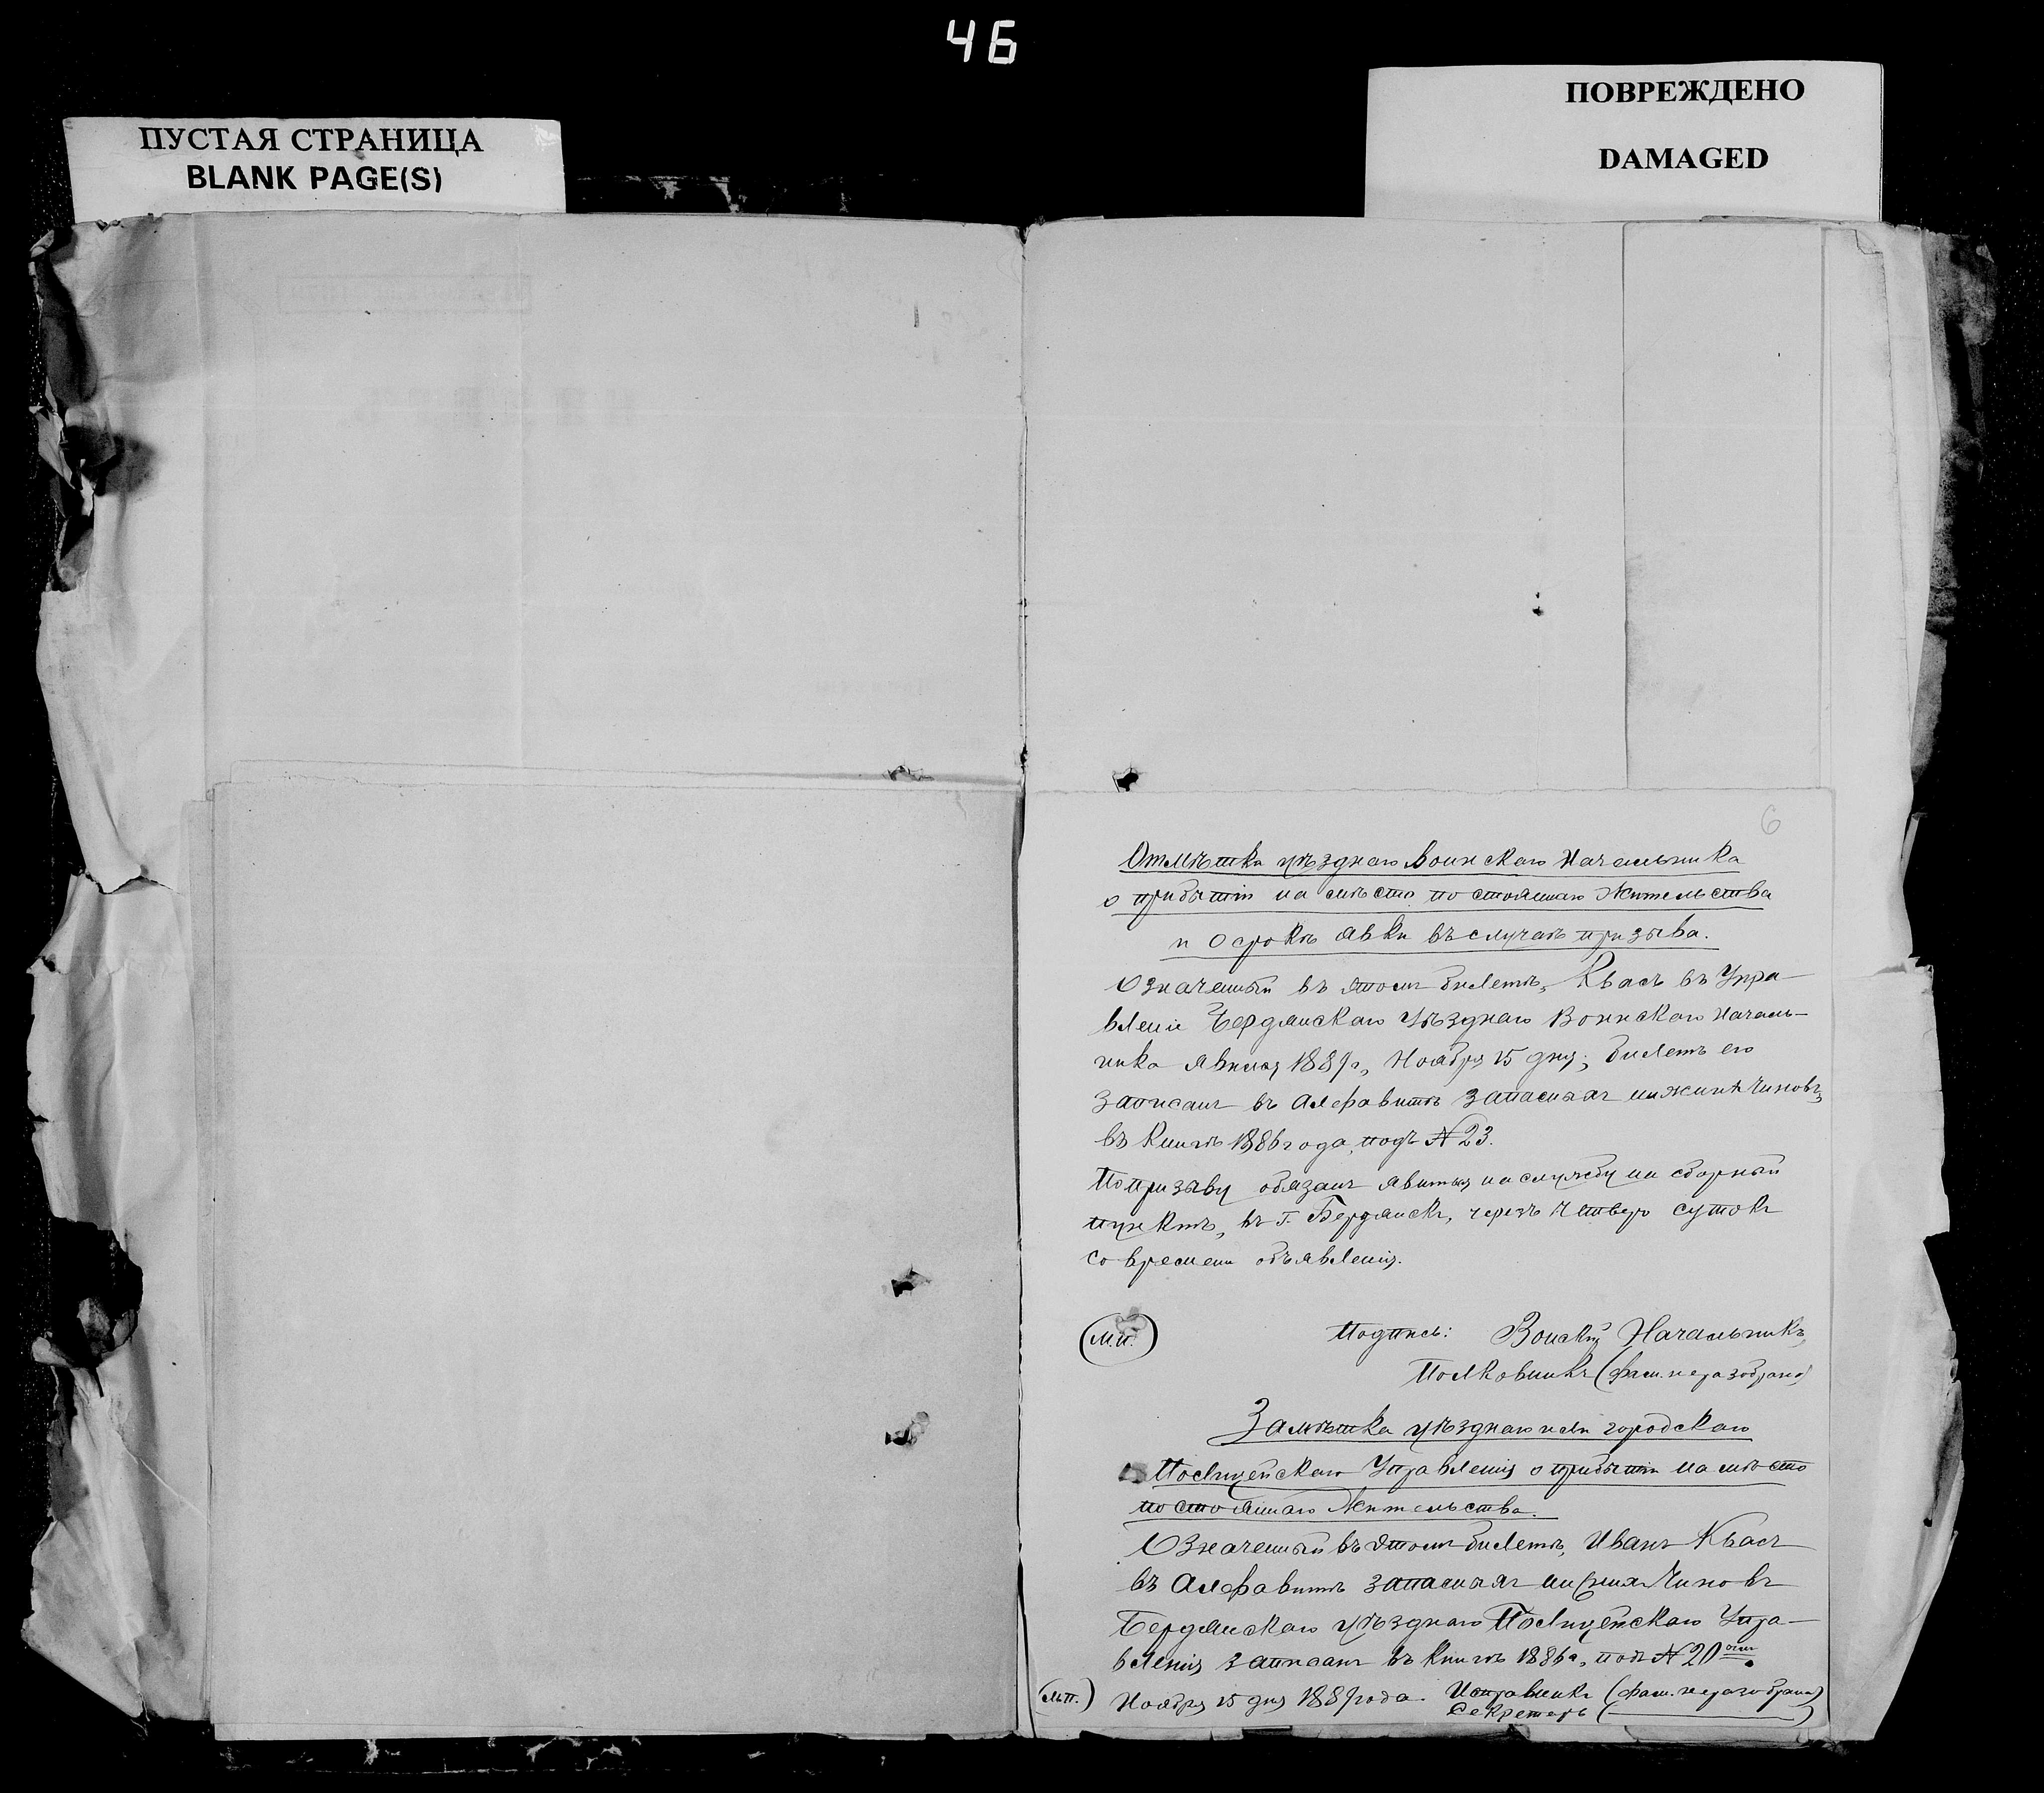 46
ПУСТАЯ СТРАНИЦА
BLANK PAGE(S)
ПОВРЕЖДЕНО
DAMAGED
6
Отмѣтка уѣзднаго Воинскаго Начальника
о прибытіи на мѣсто постояннаго жительства
и о срокѣ явки въ случаѣ призыва.
Означенный въ этомъ билетѣ, Квасъ въ Упра-
вленіе Бердянскаго Уѣзднаго Воинскаго Началь-
ника явился 1889г, Ноября 15 дня; билетъ его
записанъ въ Алфавитѣ запасныхъ нижнихъ Чиновъ,
въ книгѣ 1886 года, подъ № 23.
По призыву обязанъ явиться на службу на сборный
пунктъ, въ г. Бердянскъ, черезъ четверо сутокъ
со времени объявленія.
(М.П.) Подпись: Воинскій Начальникъ,
Полковникъ (фам. неразобрано)
Замѣтка уѣзднаго или городскаго
Полицейскаго Управленія о прибытіи на мѣсто
постояннаго Жительства.
Означенный въ этомъ билетѣ, Иванъ Квасъ
въ Алфавитѣ запасныхъ нижнихъ Чиновъ
Бердянскаго уѣзднаго Полицейскаго Упра-
вленія записанъ въ книгѣ 1886г, подъ № 20
(М.П.) Ноября 15 дня 1889 года. Исправникъ (фам. неразобрана)
Секретарь ( )